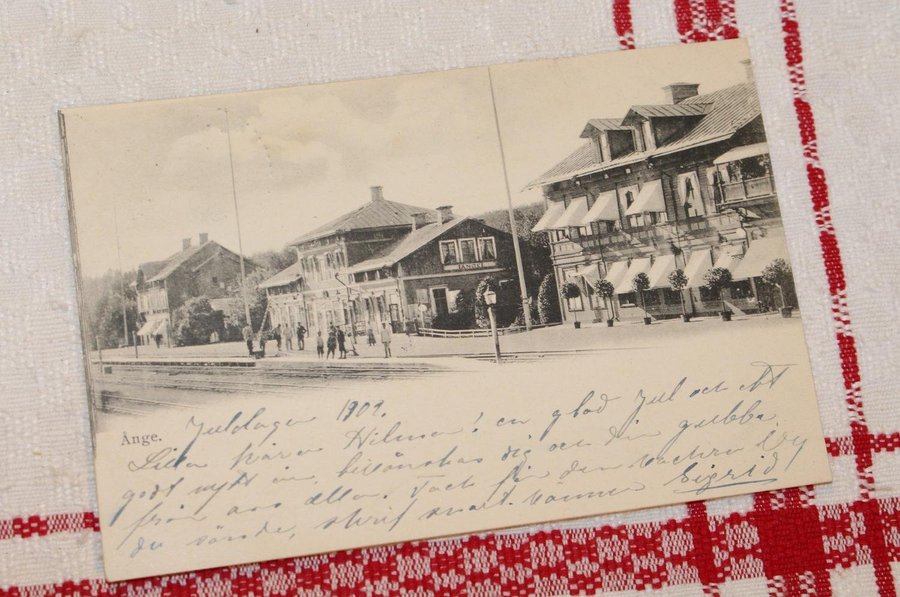 ÅNGE
Ånge.
Juldagen 1902.
Lilla kära Hilma! en glad Jul och ett
godt nytt år, tillönskas dig och din gubbe
från oss alla. Tack för den vackra
du sände, skrif snart. vännen Sigrid